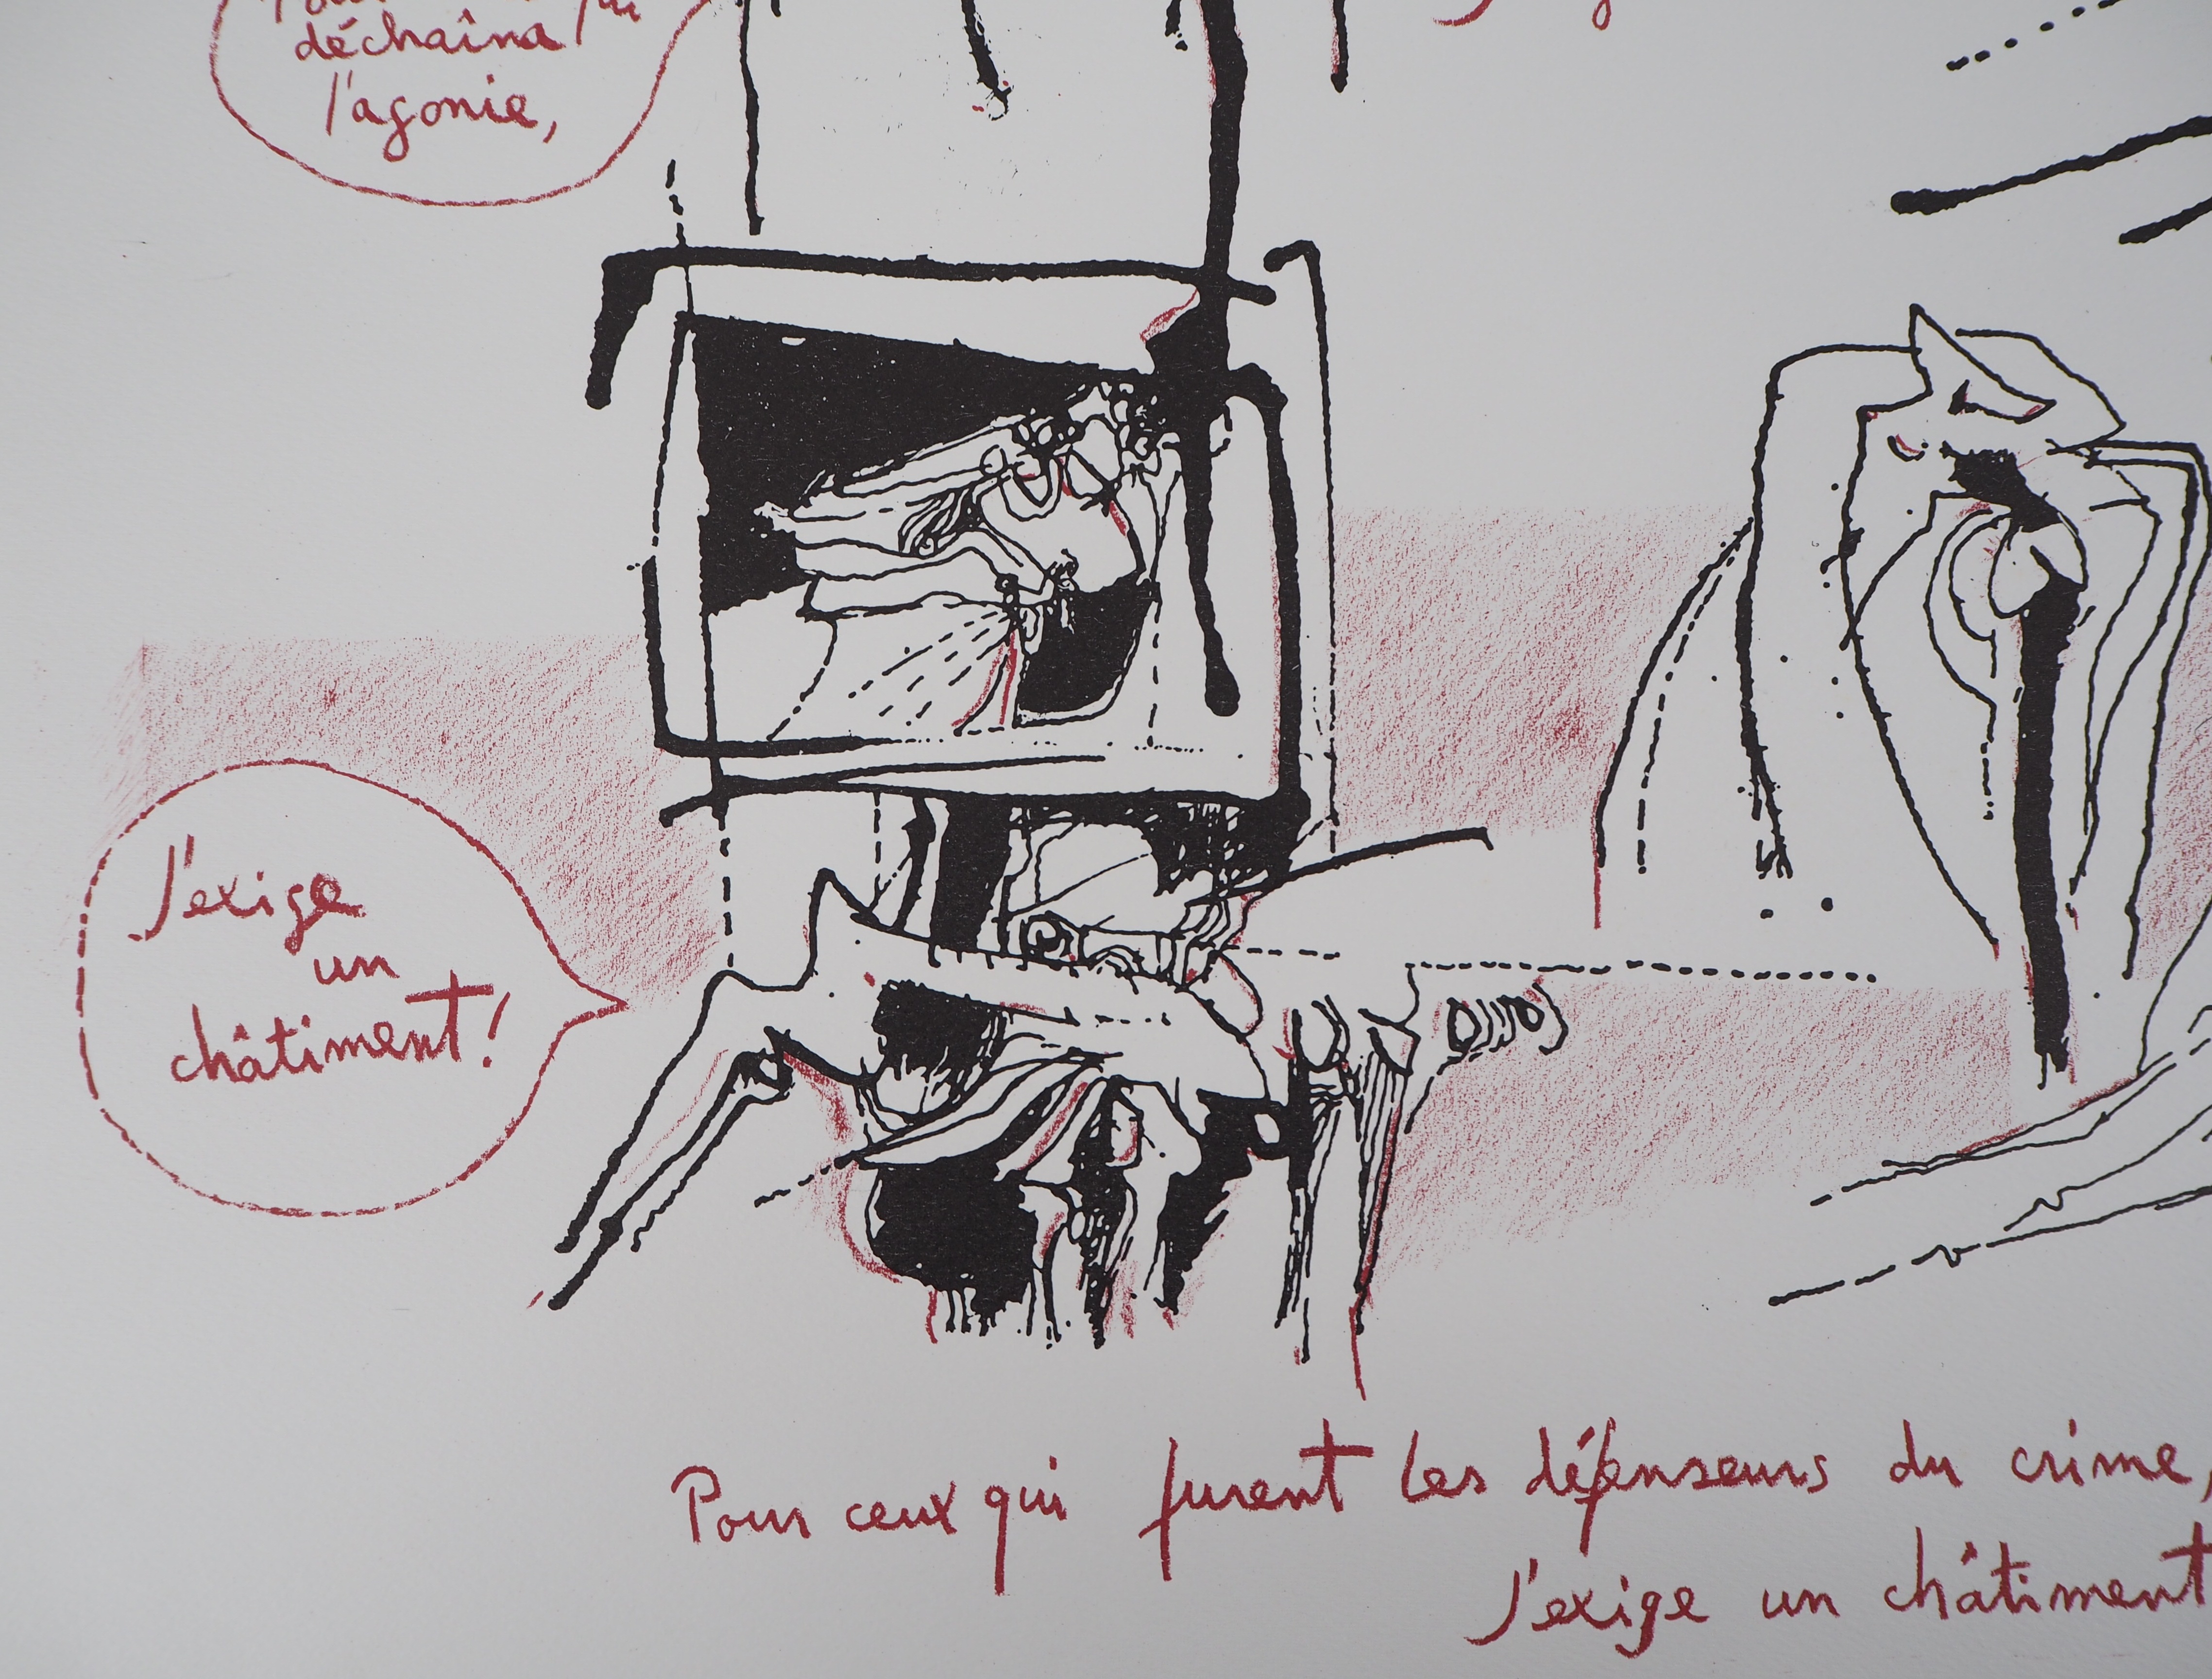 déchaîna
l'agonie,
J'exige
un
châtiment!
Pour ceux qui furent les défenseurs du crime,
J'exige un châtiment